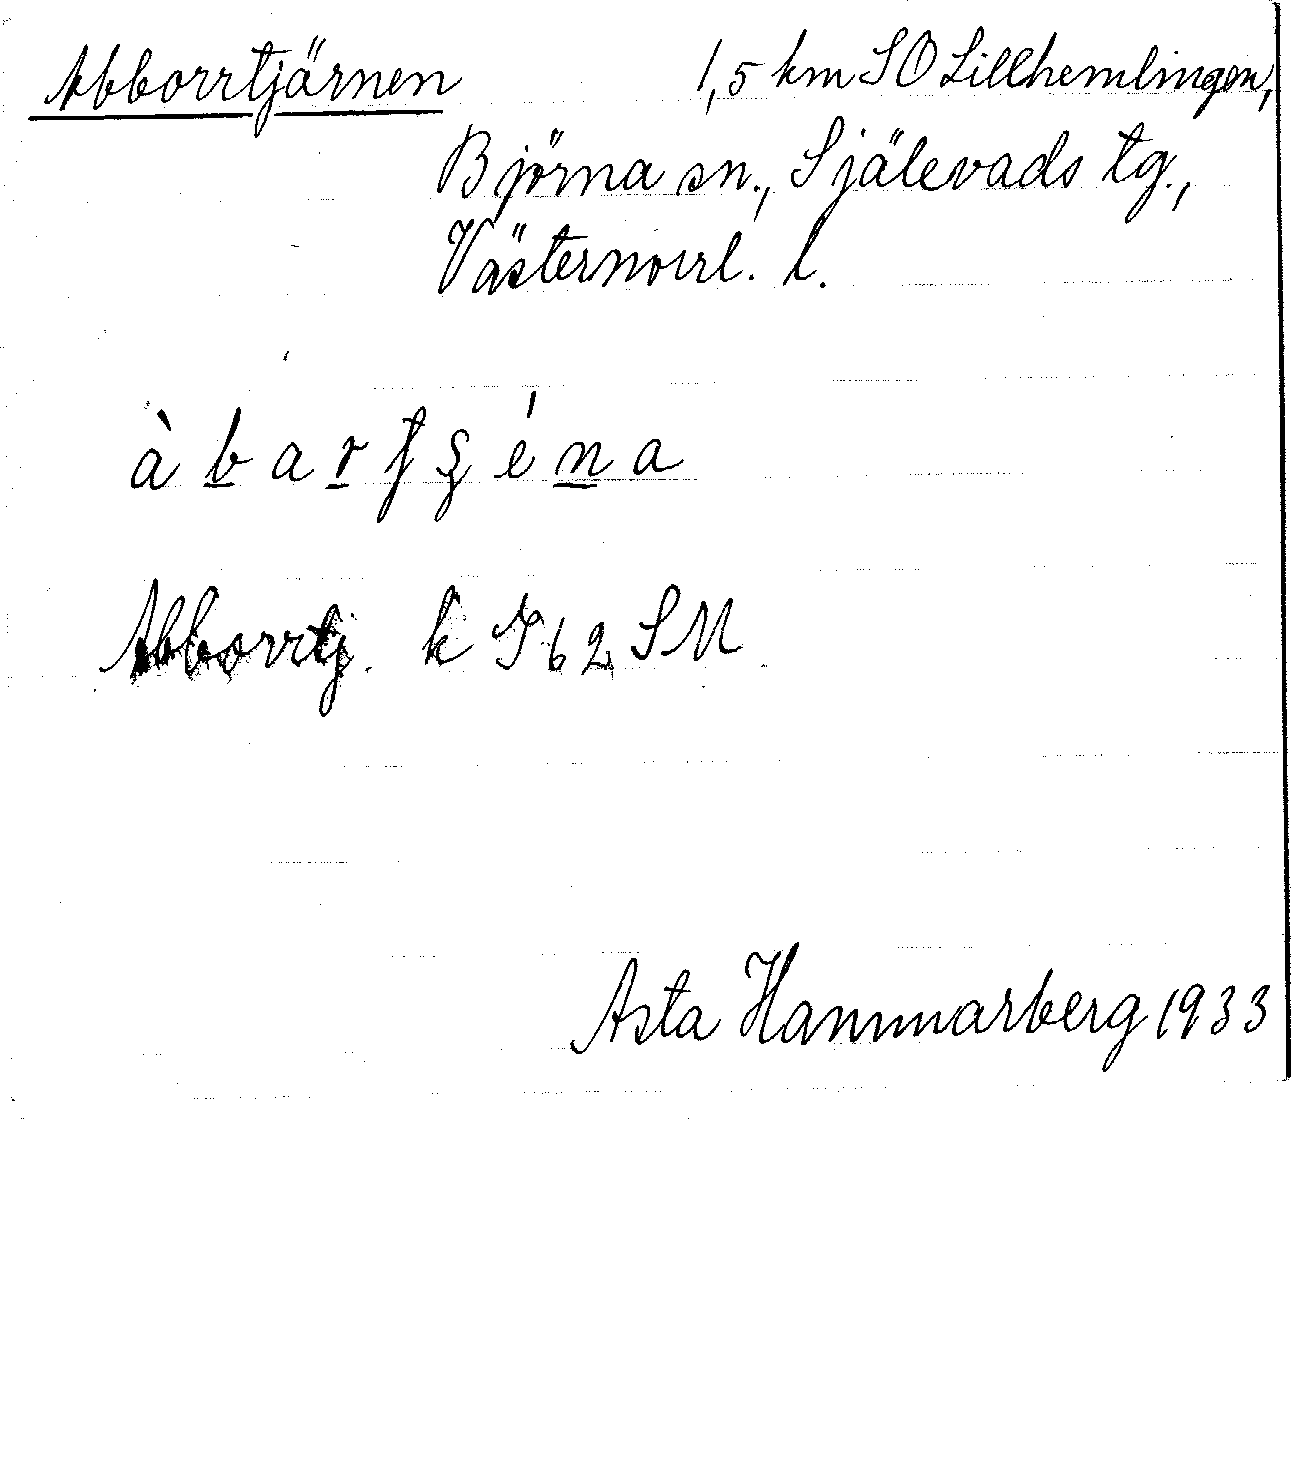 Abborrtjärnen 1,5 km SO Lillhemlingen,
Björna sn., Själevads tg.,
Västernorrl. l.
Abborrtj. k J 62 SM
Asta Hammarberg 1933